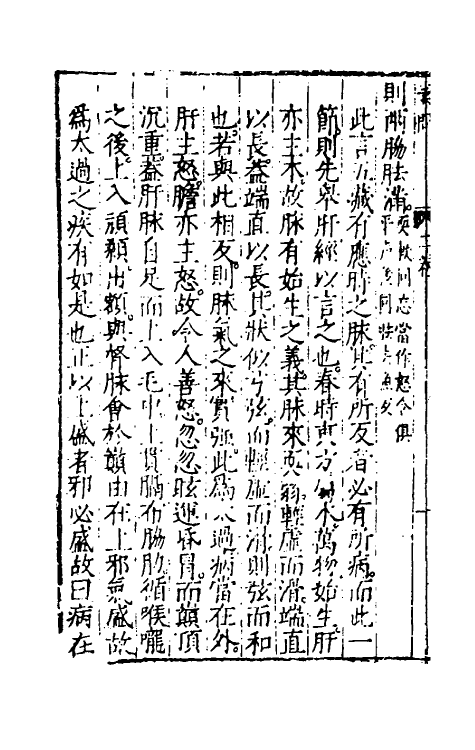 則兩脇胠滿。
此言五藏有應時之脉其有所反者必有所病而此一
節則先舉肝經以言之也春時東方木萬物始生肝
亦主木故脉有始生之義其脉來耎弱輕虛而滑端直
以長蓋端直以長其狀似乎弦而輕虛而滑則弦而和
也若與此相反則脉氣之來實強此為太過病當在外
肝主怒膽亦主怒故令人善怒忽忽眩運昏冒而顛頂
沉重蓋肝脉自足而上入毛中上貫膈布脇肋循喉嚨
之後上入頏顙出額與督脉會於巔由在上邪氣盛故
為太過之疾有如是也正以上盛者邪必盛故曰病在